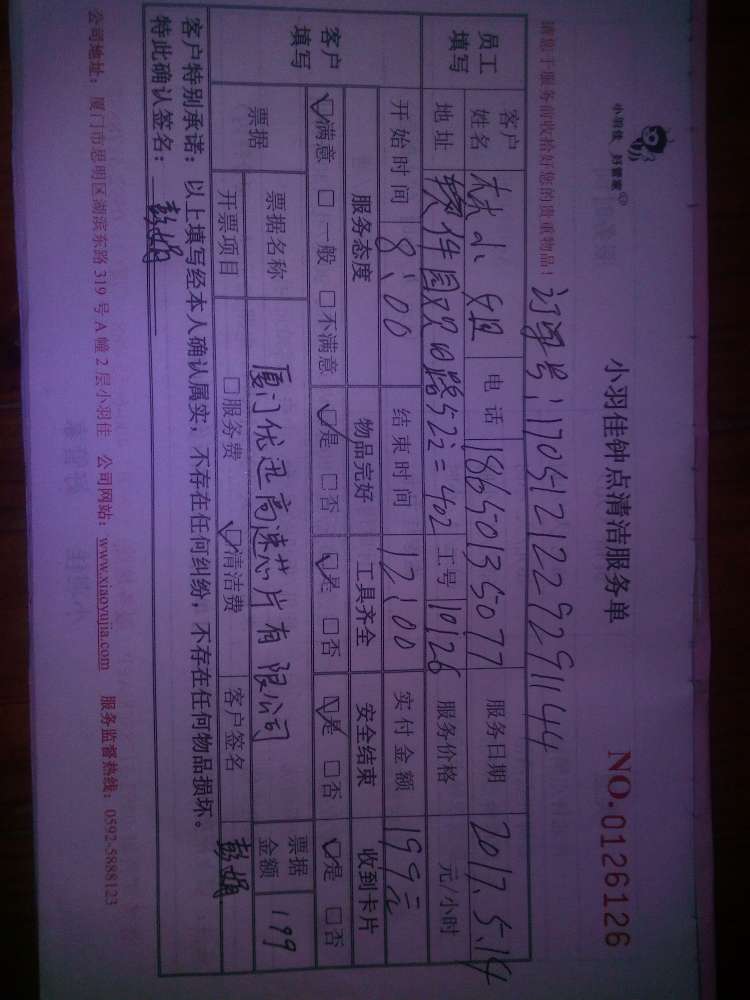 小羽佳 好管家
小羽佳钟点清洁服务单
NO.0126126
请您于服务前收拾好您的贵重物品!
订单号:1705121229291144
员工填写 客户姓名 林小姐 电话 18650135077 服务日期 2017.5.14
地址 软件园观日路52之=402 工号 10126 服务价格 元/小时
客户填写 开始时间 8:00 结束时间 12:00 实付金额 199元
服务态度 物品完好 工具齐全 安全结束 收到卡片
☑满意 □一般 □不满意 ☑是 □否 ☑是 □否 ☑是 □否 ☑是 □否
票据 票据名称 厦门优迅高速芯片有限公司 票据金额 199
开票项目 □服务费 ☑清洁费 客户签名 彭娟
客户特别承诺:以上填写经本人确认属实,不存在任何纠纷,不存在任何物品损坏。
特此确认签名:彭娟
公司地址:厦门市思明区湖滨东路319号A幢2层小羽佳 公司网站:www.xiaoyujia.com 服务监督热线:0592-5888123